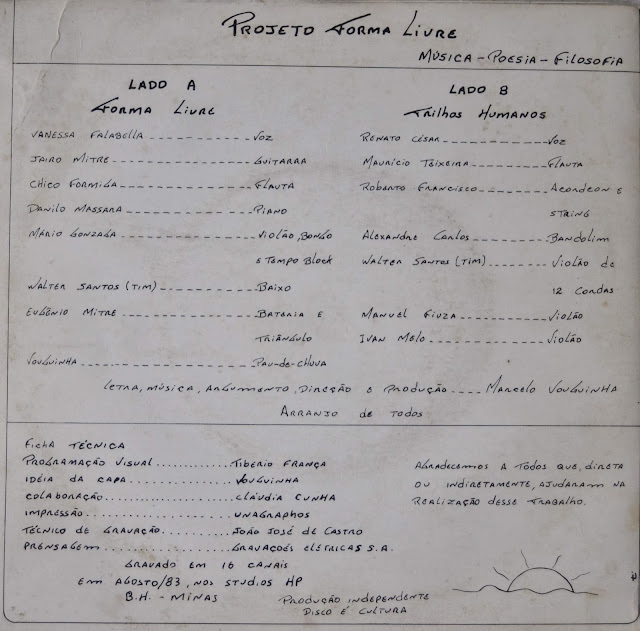 PROJETO FORMA LIVRE
MÚSICA - POESIA - FILOSOFIA
LADO A
FORMA LIVRE
VANESSA FALABELLA ------------ VOZ
JAIRO MITRE ---------------- GUITARRA
CHICO FORMIGA -------------- FLAUTA
DANILO MASSARA ------------- PIANO
MÁRIO GONZAGA -------------- VIOLÃO, BONGO
E TEMPO BLOCK
WALTER SANTOS (TIM) --------- BAIXO
EUGÊNIO MITRE -------------- BATERIA E
TRIÂNGULO
VOUGUINHA ------------------ PAU-DE-CHUVA
LADO B
TRILHOS HUMANOS
RENATO CÉSAR --------------- VOZ
MAURÍCIO TEIXEIRA ---------- FLAUTA
ROBERTO FRANCISCO ---------- ACORDEON E
STRING
ALEXANDRE CARLOS ----------- BANDOLIM
WALTER SANTOS (TIM) -------- VIOLÃO DE
12 CORDAS
MANUEL FIUZA --------------- VIOLÃO
IVAN MELO ------------------ VIOLÃO
LETRA, MÚSICA, ARGUMENTO, DIREÇÃO E PRODUÇÃO ---- MARCELO VOUGUINHA
ARRANJO DE TODOS
FICHA TÉCNICA
PROGRAMAÇÃO VISUAL .......... TIBERIO FRANÇA
IDÉIA DA CAPA ............... VOUGUINHA
COLABORAÇÃO ................. CLÁUDIA CUNHA
IMPRESSÃO ................... UNAGRAPHOS
TÉCNICO DE GRAVAÇÃO ......... JOÃO JOSÉ DE CASTRO
PRENSAGEM ................... GRAVAÇÕES ELÉTRICAS S.A.
GRAVADO EM 16 CANAIS
EM AGOSTO/83, NOS STUDIOS HP
B.H. - MINAS
AGRADECEMOS A TODOS QUE, DIRETA
OU INDIRETAMENTE, AJUDARAM NA
REALIZAÇÃO DESSE TRABALHO.
PRODUÇÃO INDEPENDENTE
DISCO É CULTURA